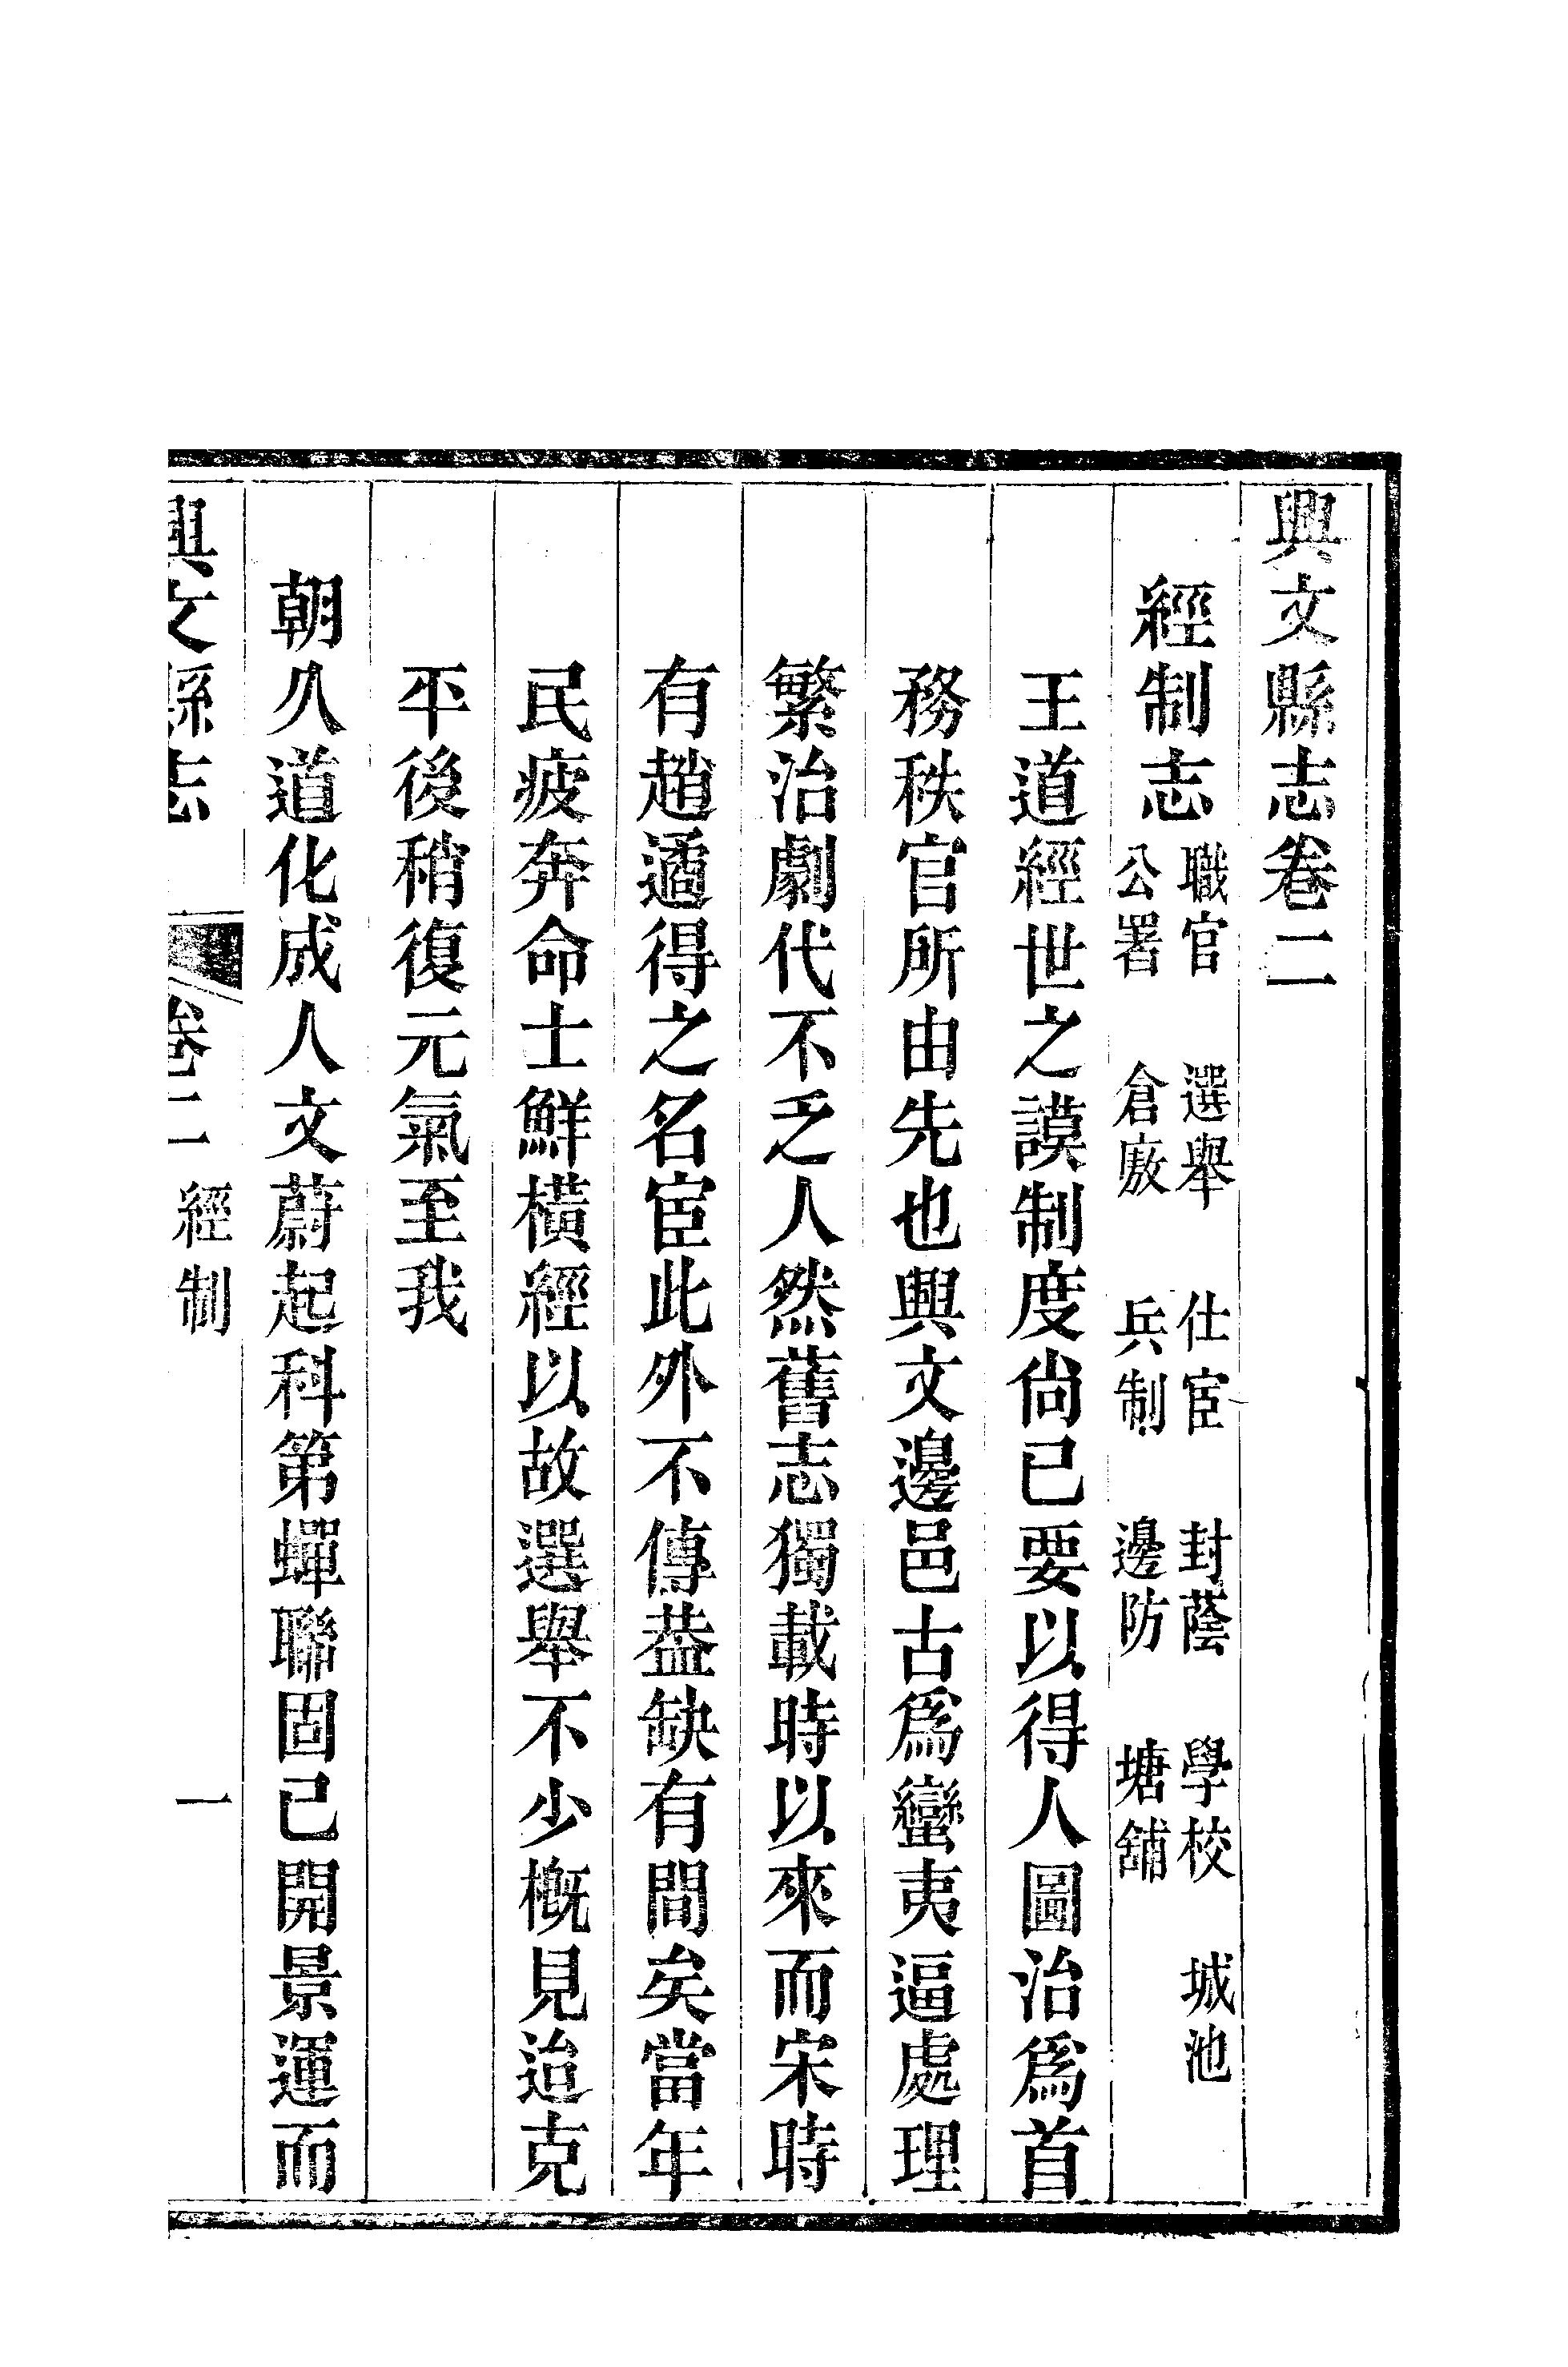 興文縣志卷二
經制志 職官 選舉 仕宦 封蔭 學校 城池
公署 倉廒 兵制 邊防 塘舖
王道經世之謨制度尚已要以得人圖治爲首
務秩官所由先也興文邊邑古爲蠻夷逼處理
繁治劇代不乏人然舊志獨載時以來而宋時
有趙遹得之名宦此外不傳葢缺有間矣當年
民疲奔命士鮮橫經以故選舉不少槪見迨克
平後稍復元氣至我
朝久道化成人文蔚起科第蟬聯固已開景運而
興文縣志 卷二 經制 一